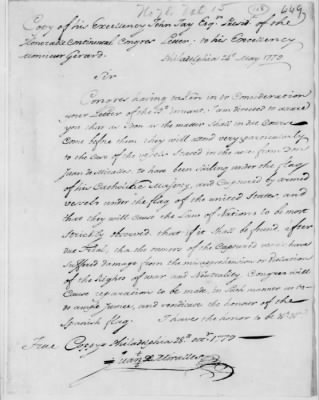 No 76 Dat 15 649
Copy of his Excellency John Jay Esqr. Presidt. of the
Honorable Continental Congress Letter, to his Excellency
Monsieur Gérard. Philadelphia 24th May 1779
Sir
Congress having taken in to Consideration
your Letter of the instant; I am directed to assure
you that as soon as the matter Shall in due Course
Come before them, they will attend very particularly
to the Case of the vessels Stated in the note from Don
Juan de Miralles, to have been Sailing under the flag
of his Catholic Majesty, and Captured by armed
vessels under the flag of the united States; and
that they will Cause the Law of Nations to be most
Strictly observed: that if it Shall be found, after
due Trial, that the owners of the Captured vessels have
Suffered damage from the misapprehension or violation
of the Rights of war and Neutrality, Congress will
Cause reparation to be made, in Such manner as to
do ample Justice, and vindicate the honour of the
Spanish flag. I have the honor to be
True Copy Philadelphia 28th 1779
Juan de Miralles